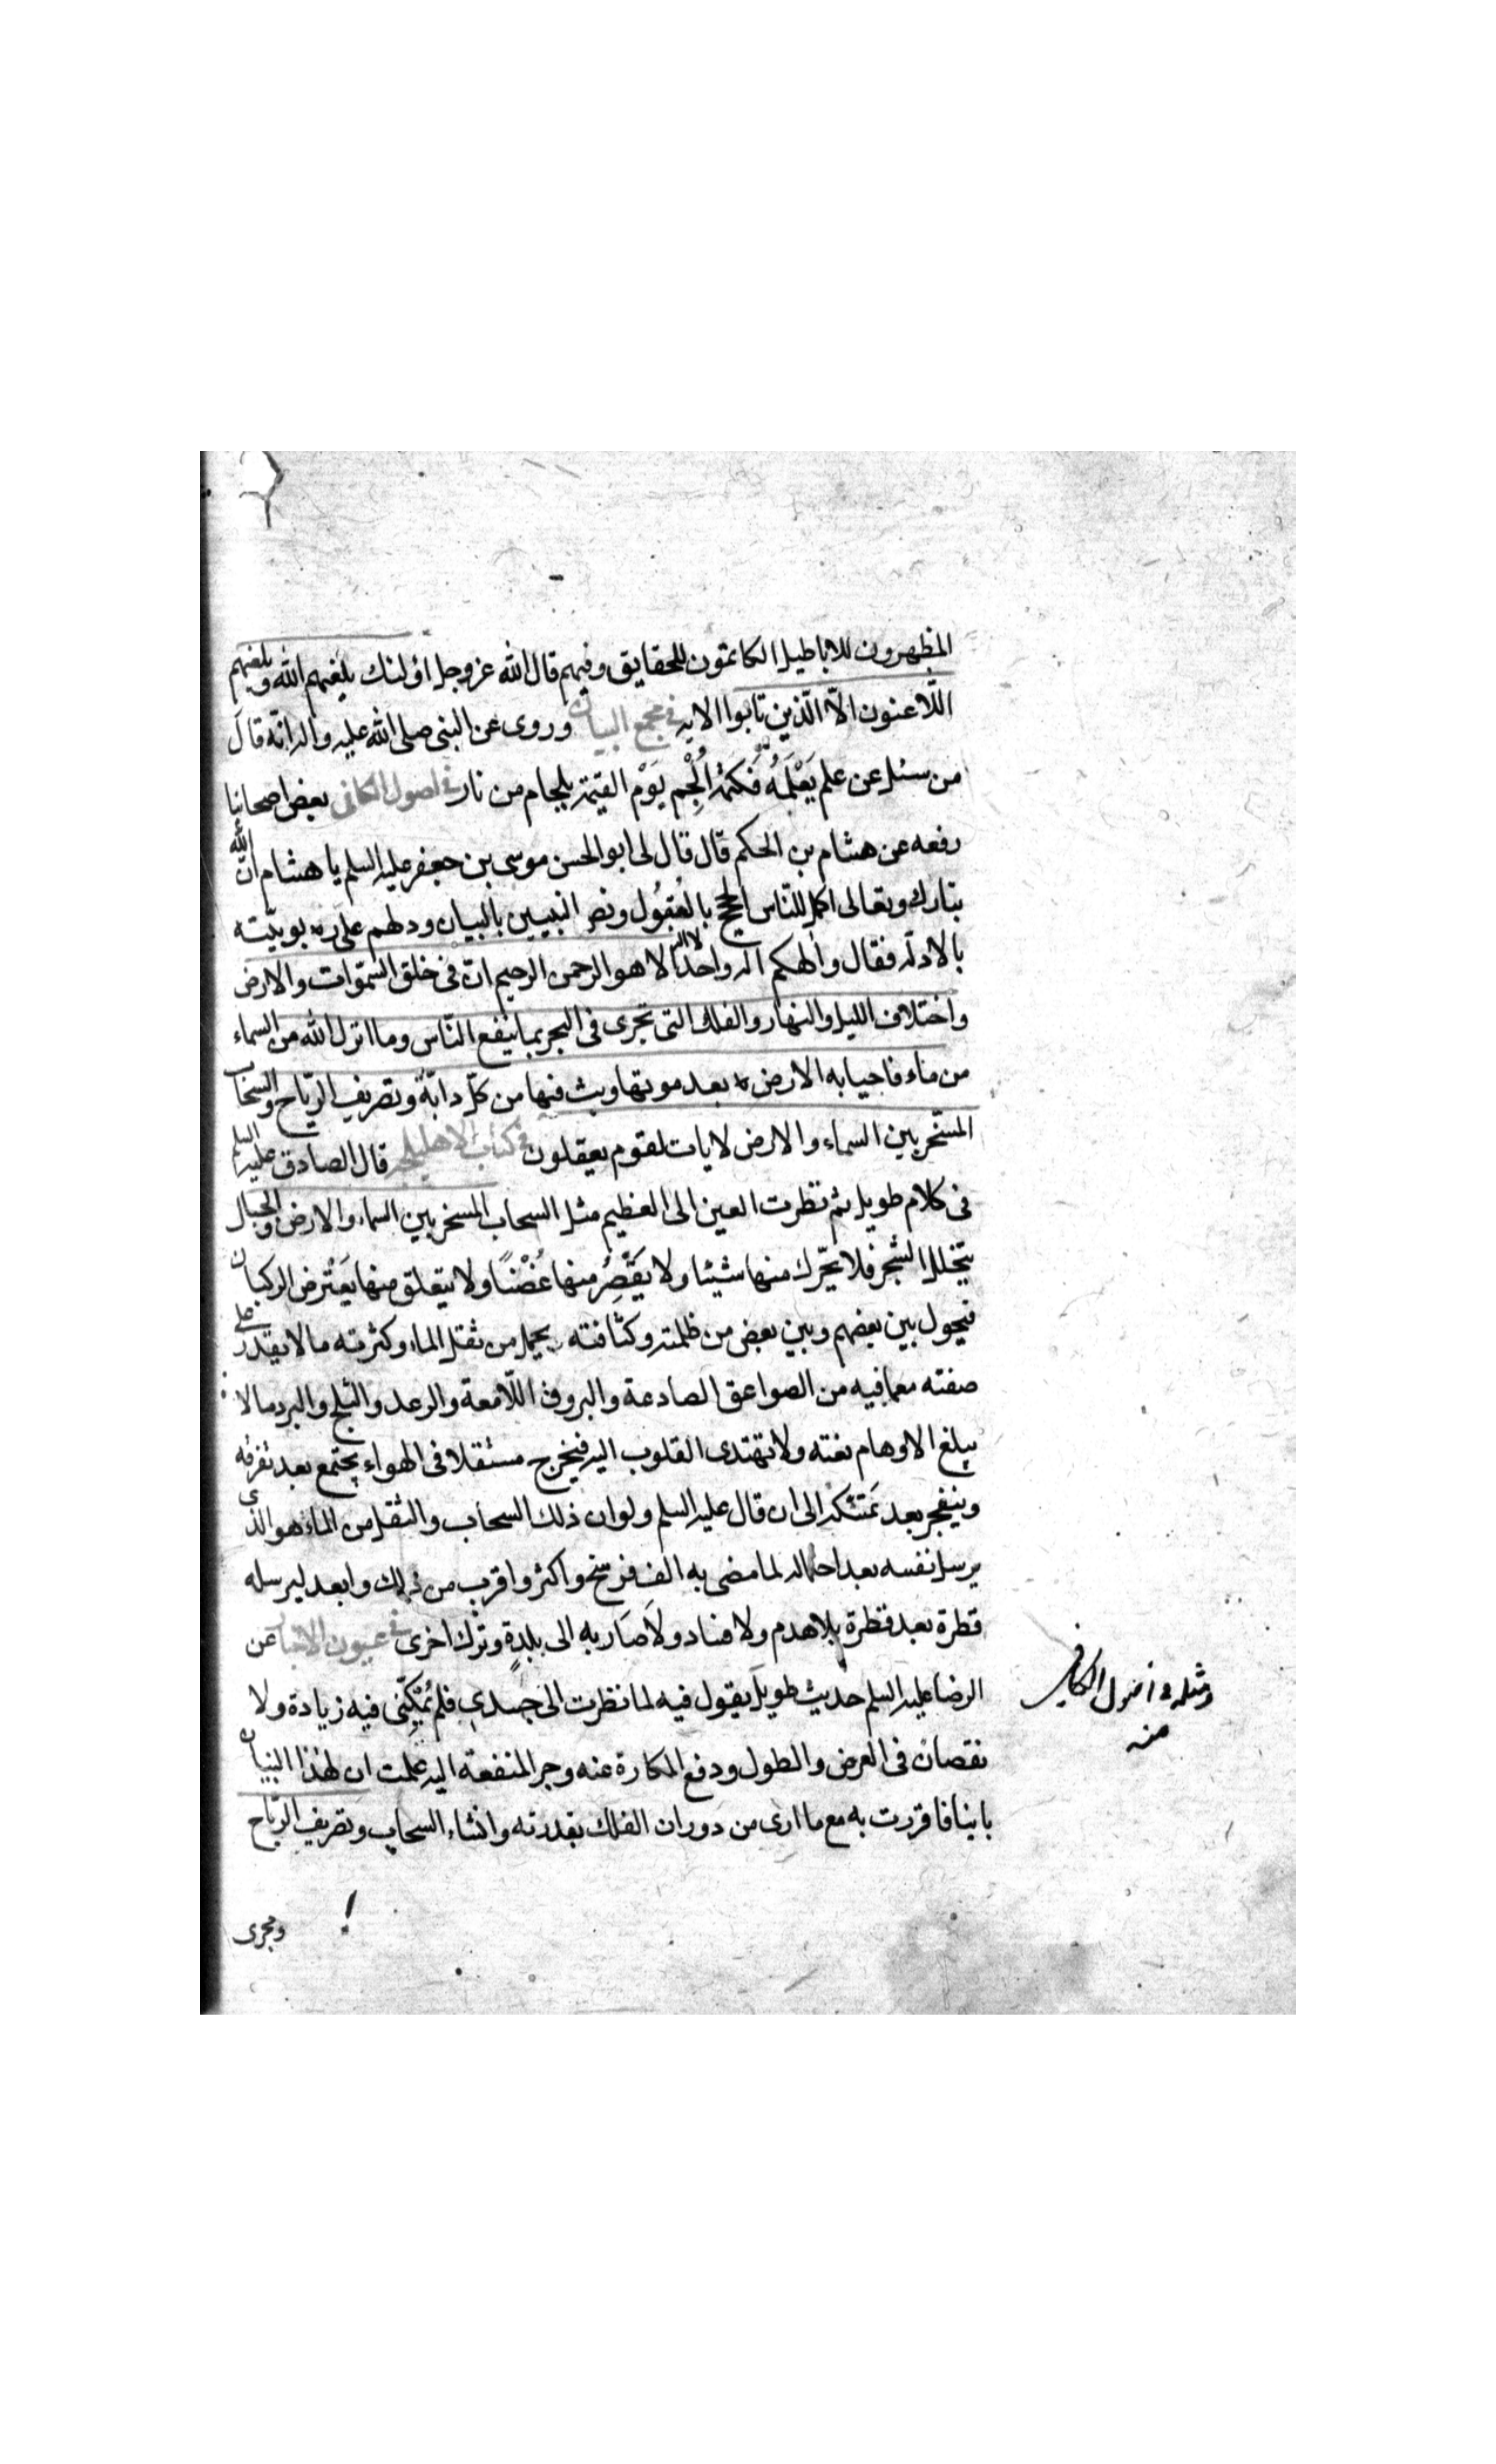 المظهرون للاباطيل الكاتمون للحقايق وفيهم قال الله عز وجل اولئك يلعنهم الله ويلعنهم
اللّاعنون الاّ الّذين تابوا الايه في مجمع البيان وروى عن النبى صلى الله عليه واله انّه قال
من سئل عن علم يَعْلَمُهُ فكتمه اُلْجِم يَوْم القيمة بلجام من نار في اصول الكافى بعض اصحابنا
رفعه عن هشام بن الحكم قال قال لى ابو الحسن موسى بن جعفر عليه السلم يا هشام انّ الله
تبارك وتعالى اكمل للنّاس الحجج بالعُقُول ونصر النبيين بالبيان ودلهم على ربوبيّته
بالادله فقال والهكم اله واحد لا اله الا هو الرحمن الرحيم انّ فى خلق السّموات والارض
واختلاف الليل والنهار والفلك التى تجرى فى البحر بما ينفع النّاس وما انزل الله من السماء
من ماء فاحيا به الارض بعد موتها وبث فيها من كلّ دابّة وتصريف الرّياح والسّحاب
المسّخر بين السماء والارض لايات لقوم يعقلون في كتاب الاهليلجه قال الصادق عليه السلم
فى كلام طويل ثم نظرت العين الى العظيم مثل السحاب المسخر بين السماء والارض والجبال
يتخلل الشجر فلا يحّرك منها شيئا ولا يقَصِّرُ منها غُصْنًا ولا يتعلق منها يَعْترض الركبان
فيحول بين بعضهم وبين بعض من ظلمته وكثافته يحمل من ثقل الماء وكثرته ما لا يقدر على
صفته مع ما فيه من الصواعق الصادعة والبروق اللّامعة والرعد والثلج والبرد ما لا
يبلغ الاوهام نعته ولا تهتدى القلوب اليه فيخرج مستقلا فى الهواء يجتمع بعد تفرقه
وينفجر بعد تَمَسّكه الى ان قال عليه السلم ولو ان ذلك السحاب والثقل من الماء هو الذى
يرسل نفسه بعد احتماله لما مضى به الف فرسخ واكثر واقرب من ذلك وابعد ليرسله
قطرة بعد قطرة بلا هدم ولا فساد ولا صَار به الى بلدةٍ وترك اخرى في عيون الاخبار عن
الرضا عليه السلم حديث طويل يقول فيه لما نظرت الى جسدى فلم يُمْكِنّى فيه زيادة ولا
نقصان فى العرض والطول ودفع المكارة عنه وجر المنفعة اليه علمت ان لهذا البنيان
بانيا فاقررت به مع ما ارى من دوران الفلك بقدرته وانشاء السحاب وتصريف الرّياح
ومجرى
ومثله في اصول الكافي
منه